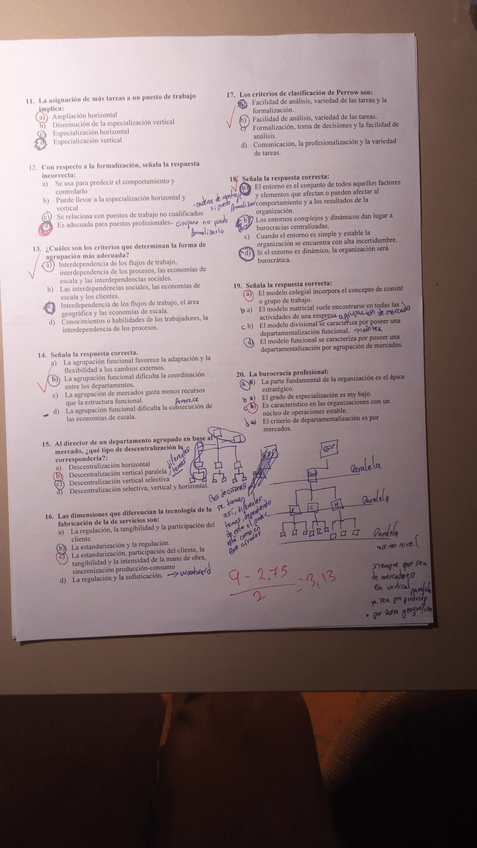 11. La asignación de más tareas a un puesto de trabajo
implica:
a) Ampliación horizontal
b) Disminución de la especialización vertical
c) Especialización horizontal
d) Especialización vertical
12. Con respecto a la formalización, señala la respuesta
incorrecta:
a) Se usa para predecir el comportamiento y
controlarlo
b) Puede llevar a la especialización horizontal y
vertical
c) Se relaciona con puestos de trabajo no cualificados
d) Es adecuada para puestos profesionales
13. ¿Cuáles son los criterios que determinan la forma de
agrupación más adecuada?
a) Interdependencia de los flujos de trabajo,
interdependencia de los procesos, las economías de
escala y las interdependencias sociales.
b) Las interdependencias sociales, las economías de
escala y los clientes.
c) Interdependencia de los flujos de trabajo, el área
geográfica y las economías de escala.
d) Conocimientos o habilidades de los trabajadores, la
interdependencia de los procesos.
14. Señala la respuesta correcta.
a) La agrupación funcional favorece la adaptación y la
flexibilidad a los cambios externos.
b) La agrupación funcional dificulta la coordinación
entre los departamentos,
c) La agrupación de mercados gasta menos recursos
que la estructura funcional.
favorece
d) La agrupación funcional dificulta la consecución de
las economías de escala.
15. Al director de un departamento agrupado en base al
mercado, ¿qué tipo de descentralización le
correspondería?:
a) Descentralización horizontal
b) Descentralización vertical paralela
c) Descentralización vertical selectiva
d) Descentralización selectiva, vertical y horizontal.
16. Las dimensiones que diferencian la tecnología de la
fabricación de la de servicios son:
a) La regulación, la tangibilidad y la participación del
cliente.
b) La estandarización y la regulación.
c) La estandarización, participación del cliente, la
tangibilidad y la intensidad de la mano de obra,
sincronización producción-consumo
d) La regulación y la sofisticación. → woodward
17. Los criterios de clasificación de Perrow son:
a) Facilidad de análisis, variedad de las tareas y la
formalización.
b) Facilidad de análisis, variedad de las tareas.
c) Formalización, toma de decisiones y la facilidad de
análisis.
d) Comunicación, la profesionalización y la variedad
de tareas.
18. Señala la respuesta correcta:
a) El entorno es el conjunto de todos aquellos factores
y elementos que afectan o pueden afectar al
comportamiento y a los resultados de la
organización.
b) Los entornos complejos y dinámicos dan lugar a
burocracias centralizadas.
c) Cuando el entorno es simple y estable la
organización se encuentra con alta incertidumbre.
d) Si el entorno es dinámico, la organización será
burocrática.
19. Señala la respuesta correcta:
a) El modelo colegial incorpora el concepto de comité
o grupo de trabajo.
b) El modelo matricial suele encontrarse en todas las
actividades de una empresa agrupación de mercado
c) El modelo divisional se caracteriza por poseer una
departamentalización funcional.
d) El modelo funcional se caracteriza por poseer una
departamentalización por agrupación de mercados.
20. La burocracia profesional:
a) La parte fundamental de la organización es el ápice
estratégico.
b) El grado de especialización es muy bajo.
c) Es característico en las organizaciones con un
núcleo de operaciones estable.
d) El criterio de departamentalización es por
mercados.
Paralela
Paralela
Paralela
mismo nivel
las decisiones
se toman
siempre que sea
de mercados
En vertical paralela
9 - 2,75
2
= 3,13